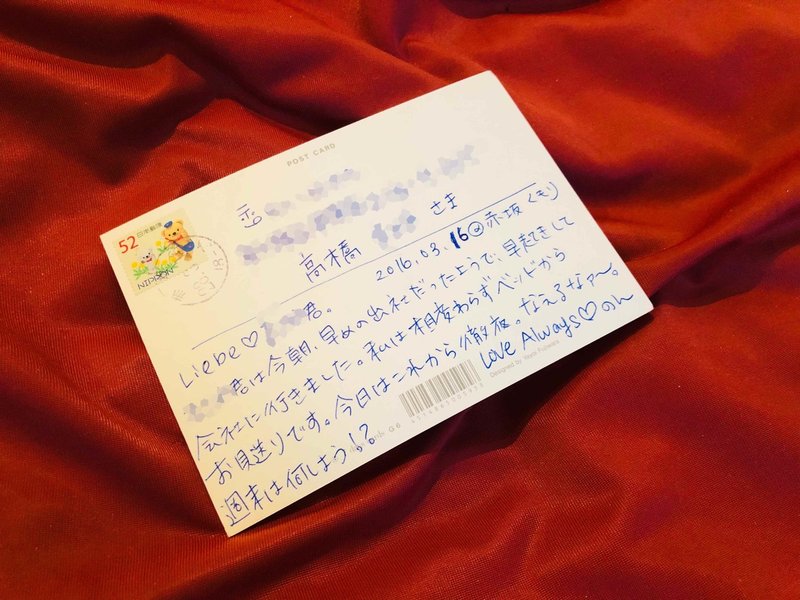 POST CARD
52 日本郵便
NIPPON
〒
高橋 さま
2016.03.16@赤坂くもり
Liebe♡ 君。
君は今朝、早めの出社だったようで、早起きして
会社に行きました。私は相変わらずベッドから
お見送りです。今日はこれから徹夜。なえるなァ〜。
週末は何しよう!? Love Always♡のん
Designed by